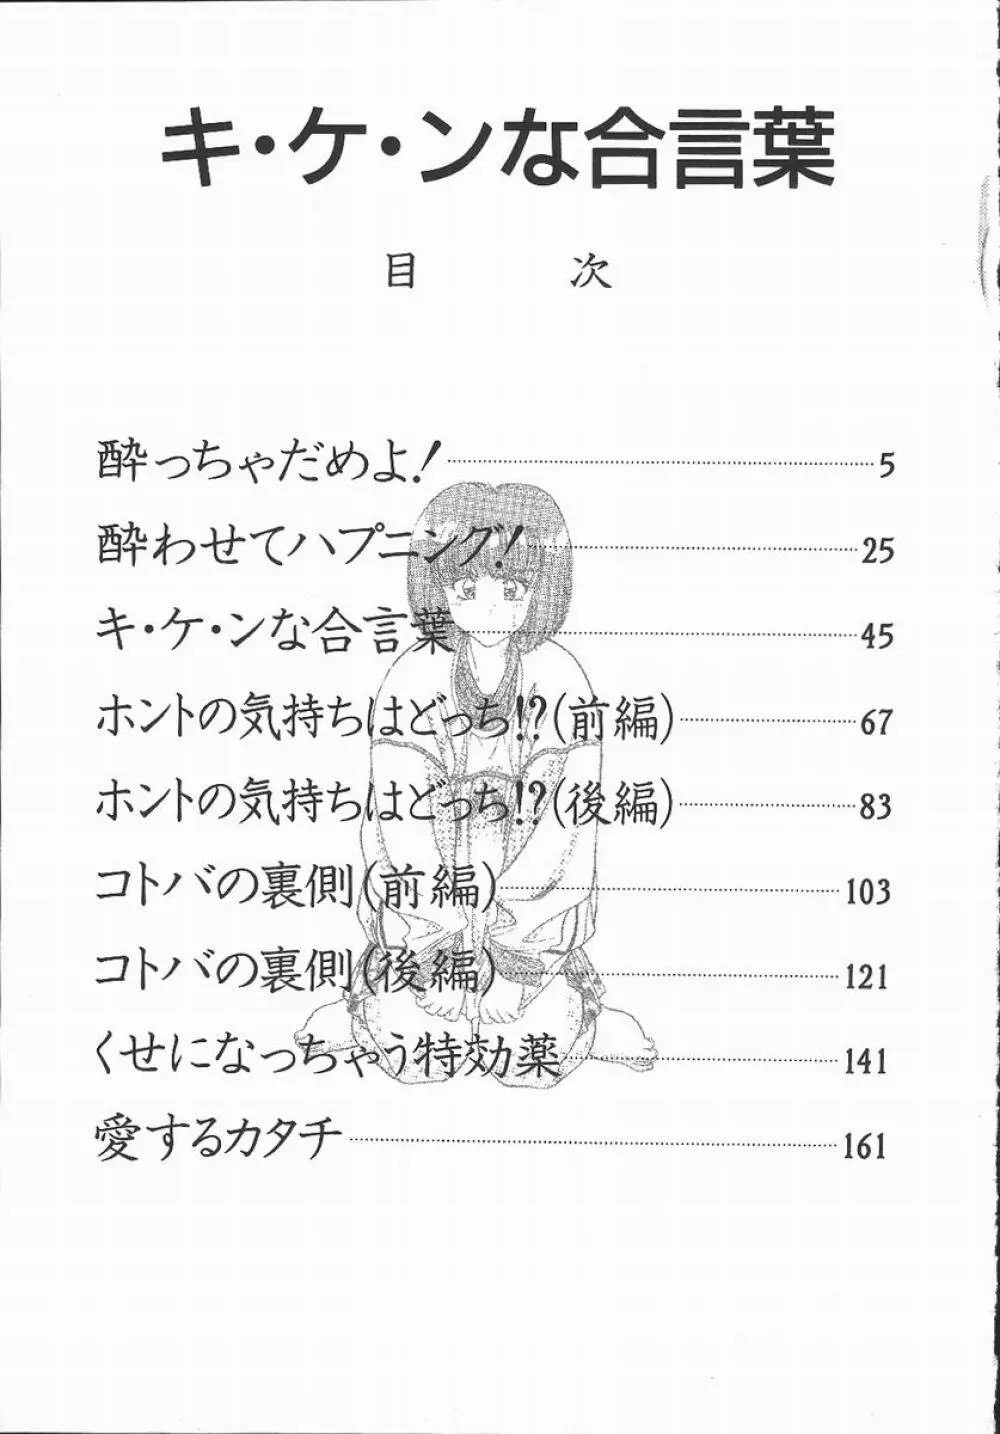 キ・ケ・ンな合言葉
目　次
酔っちゃだめよ! 5
酔わせてハプニング! 25
キ・ケ・ンな合言葉 45
ホントの気持ちはどっち!?(前編) 67
ホントの気持ちはどっち!?(後編) 83
コトバの裏側(前編) 103
コトバの裏側(後編) 121
くせになっちゃう特効薬 141
愛するカタチ 161